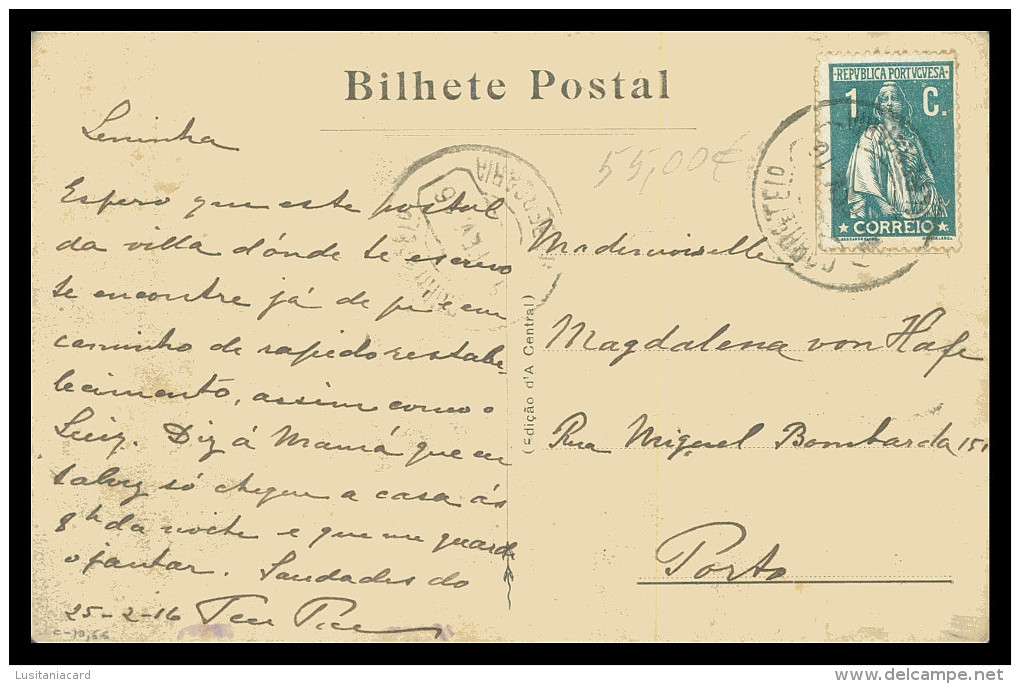 Bilhete Postal
REPVBLICA PORTVGVESA
1 C.
CORREIO
55,00€
Leninha
Espero que este postal
da villa d'onde te escrevo
te encontre já de pé e em
caminho de rapido restabe
lecimento, assim como o
Luiz. Diz á Mamá que eu
talvez só chegue a casa ás
8h da noite e que me guarde
o jantar. Saudades do
25-2-16 Teu Pae
(Edição d'A Central)
Mademoiselle
Magdalena von Hafe
Rua Miguel Bombarda 151
Porto
Lusitaniacard
www.delcampe.net